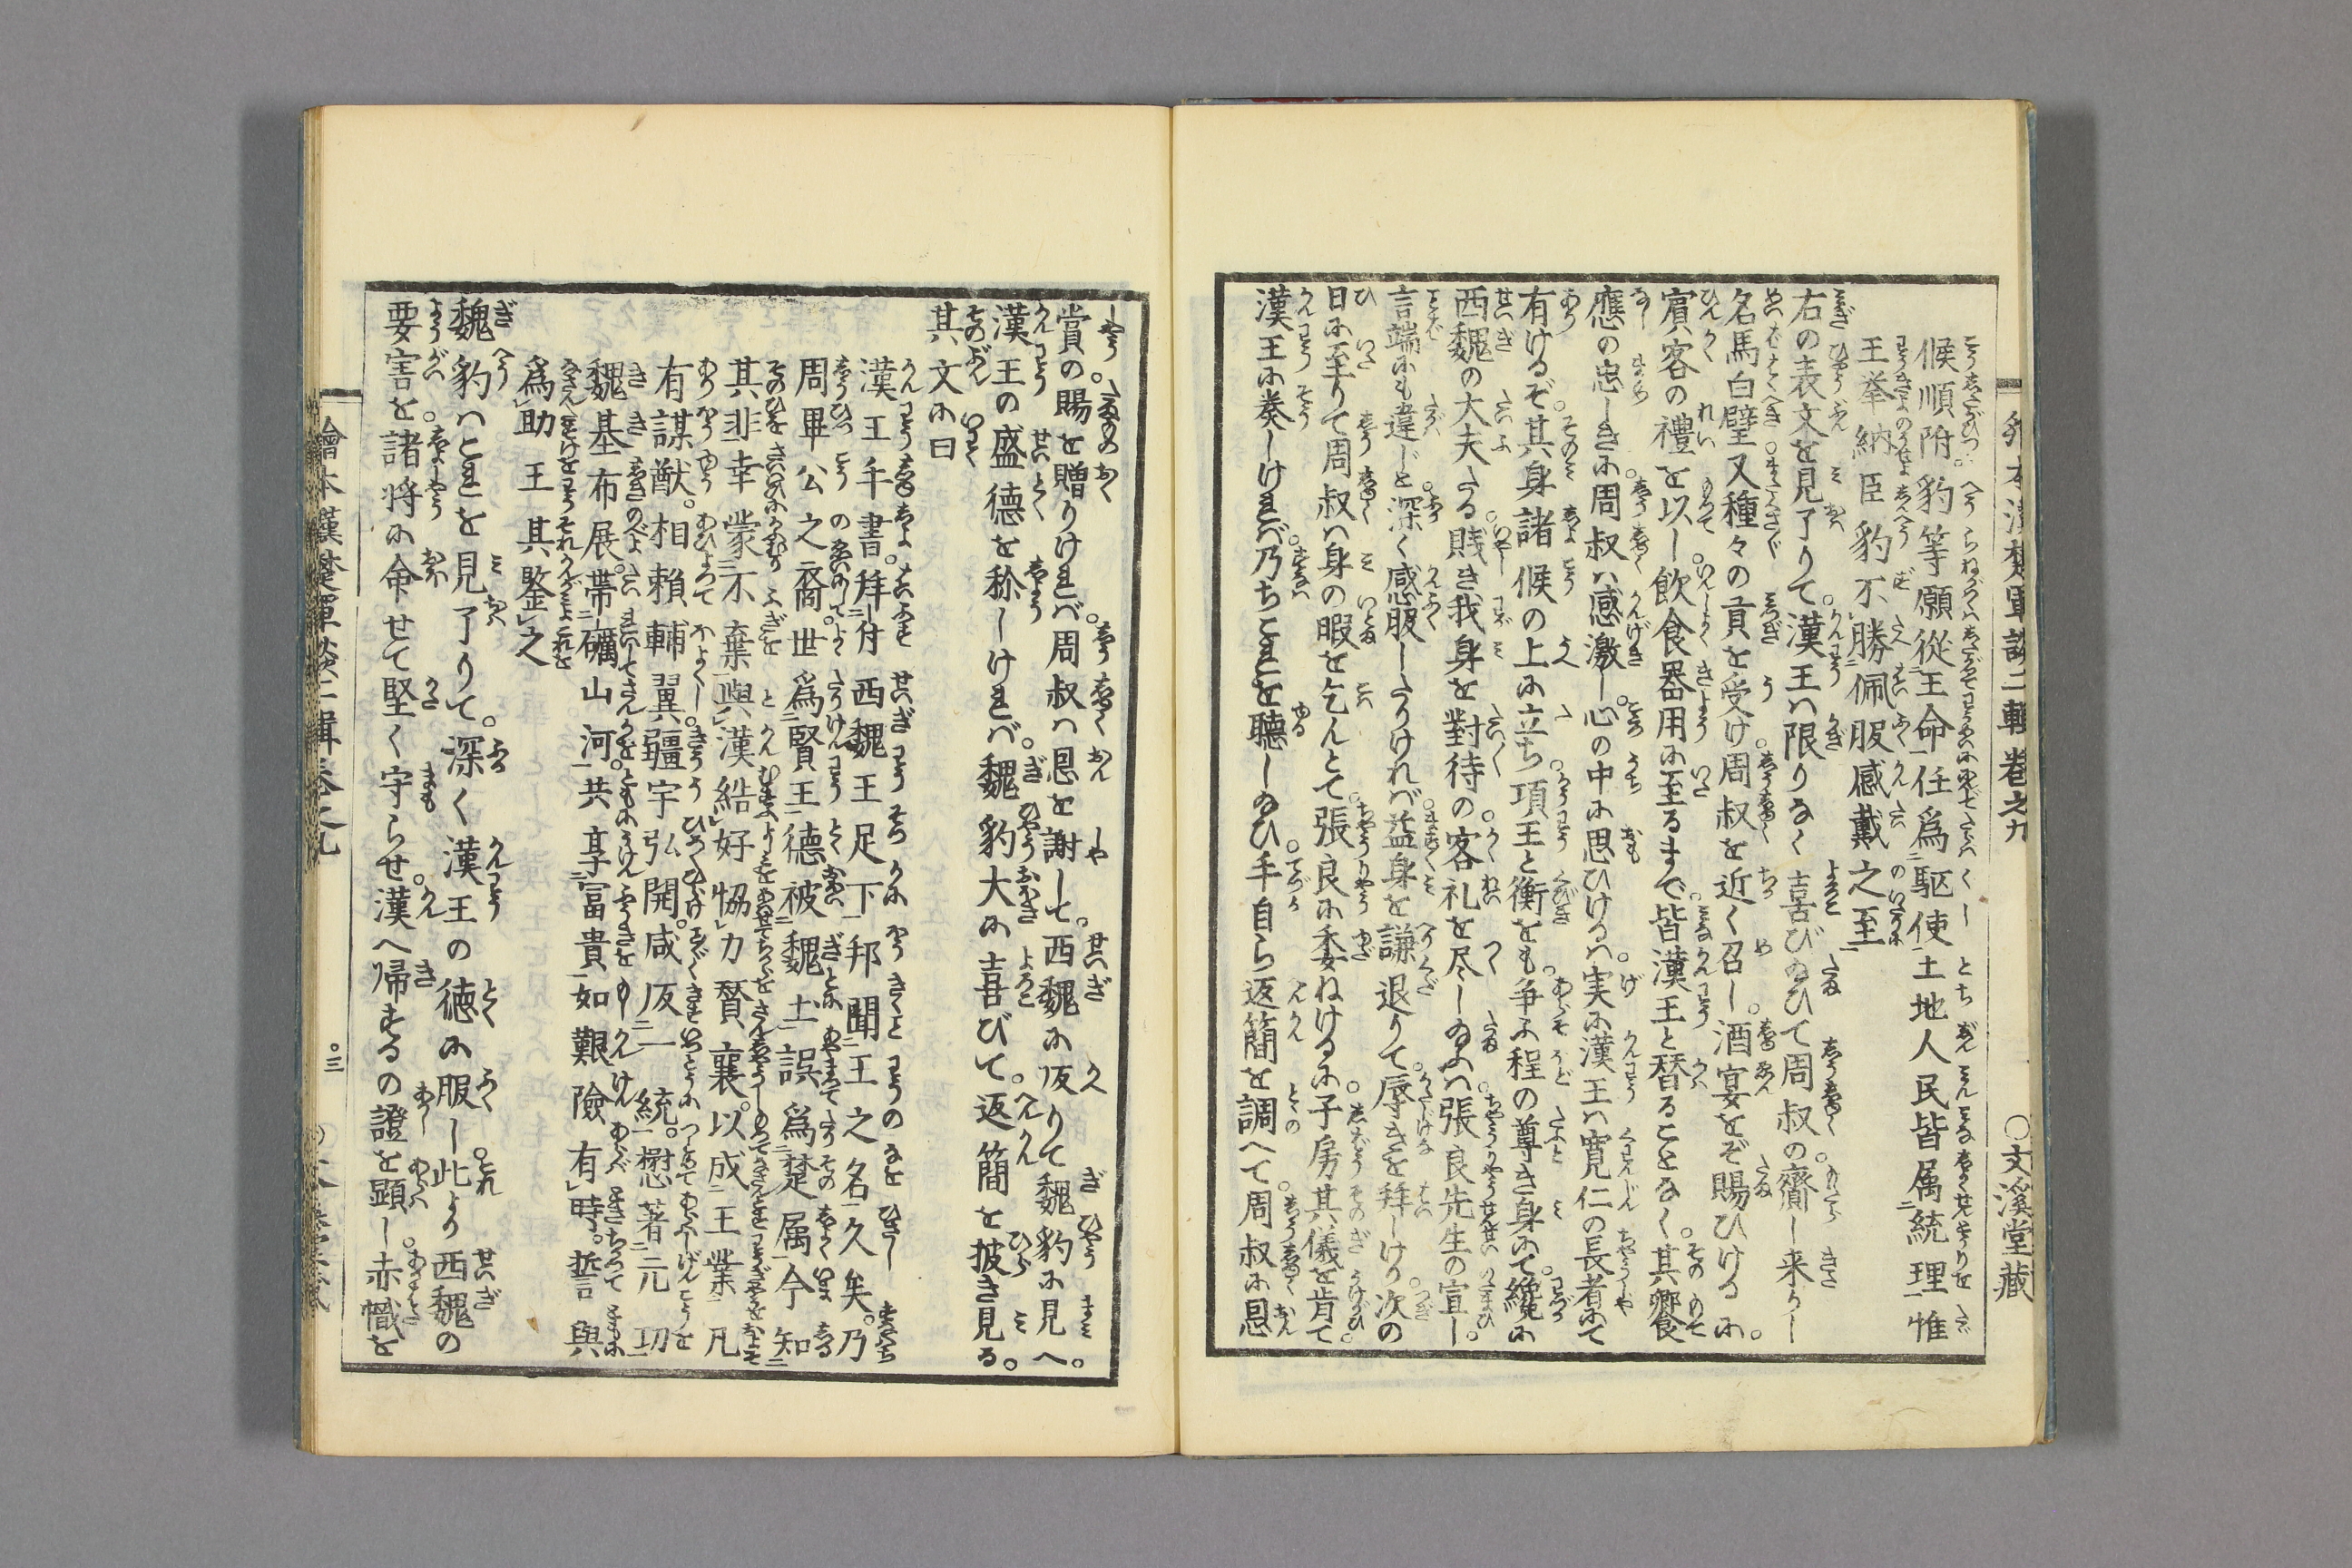 候順附豹等願從王命任爲駆使土地人民皆属統理惟
王挙納臣豹不勝佩服感戴之至
右の表文を見了りて漢王ハ限りなく喜びゐひて周叔の齎し来りし
名馬白璧又種々の貢を受け周叔を近く召し酒宴をぞ賜ひけるに
賓客の禮を以し飲食器用に至るまで皆漢王と替ることなく其饗
應の忠しきに周叔ハ感激し心の中に思ひけるハ実に漢王ハ寛仁の長者にて
有けるぞ其身諸候の上に立ち項王と衡をも争ふ程の尊き身にて纔に
西魏の大夫たる賎き我身を對待の客礼を尽しゐふハ張良先生の宣し
言端にも違じと深く感服したりけれバ益身を謙退りて辱きを拜しけり次の
日に至りて周叔ハ身の暇を乞んとて張良に委ねけるに子房其儀を肯て
漢王に奏しけれバ乃ちこれを聴しゐひ手自ら返簡を調へて周叔に恩
繪本漢楚軍談二輯巻之九
〇文溪堂藏
賞の賜を贈りけれバ周叔ハ恩を謝して西魏に皈りて魏豹に見へ
漢王の盛德を称しけれバ魏豹大に喜びて返簡を披き見る
其文に曰
漢王手書拜付西魏王足下邦聞王之名久矣乃
周畢公之裔世爲賢王德被魏土誤爲楚属今知
其非幸蒙不棄與漢結好協力賛襄以成王業凡
有謀猷相賴輔翼疆宇弘開咸皈一統懋著元功
魏基布展帯礪山河共享冨貴如艱險有時誓與
爲助王其鍳之
魏豹ハこれを見了りて深く漢王の徳に服し此より西魏の
要害を諸将に命せて堅く守らせ漢へ帰するの證を顕し赤幟を
繪本漢楚軍談二輯巻之九
〇三